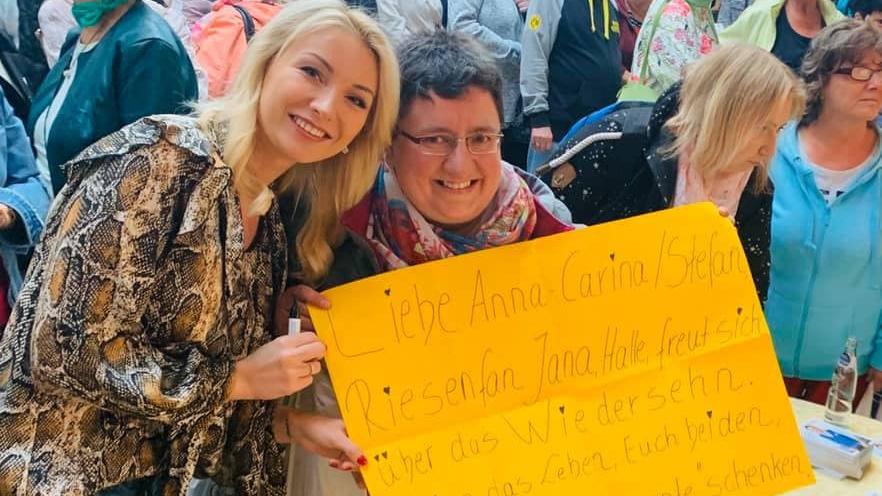 Liebe Anna-Carina/Stefan,
Riesenfan Jana, Halle, freut sich
über das Wiedersehn.
das Leben, Euch beiden,
schenken.